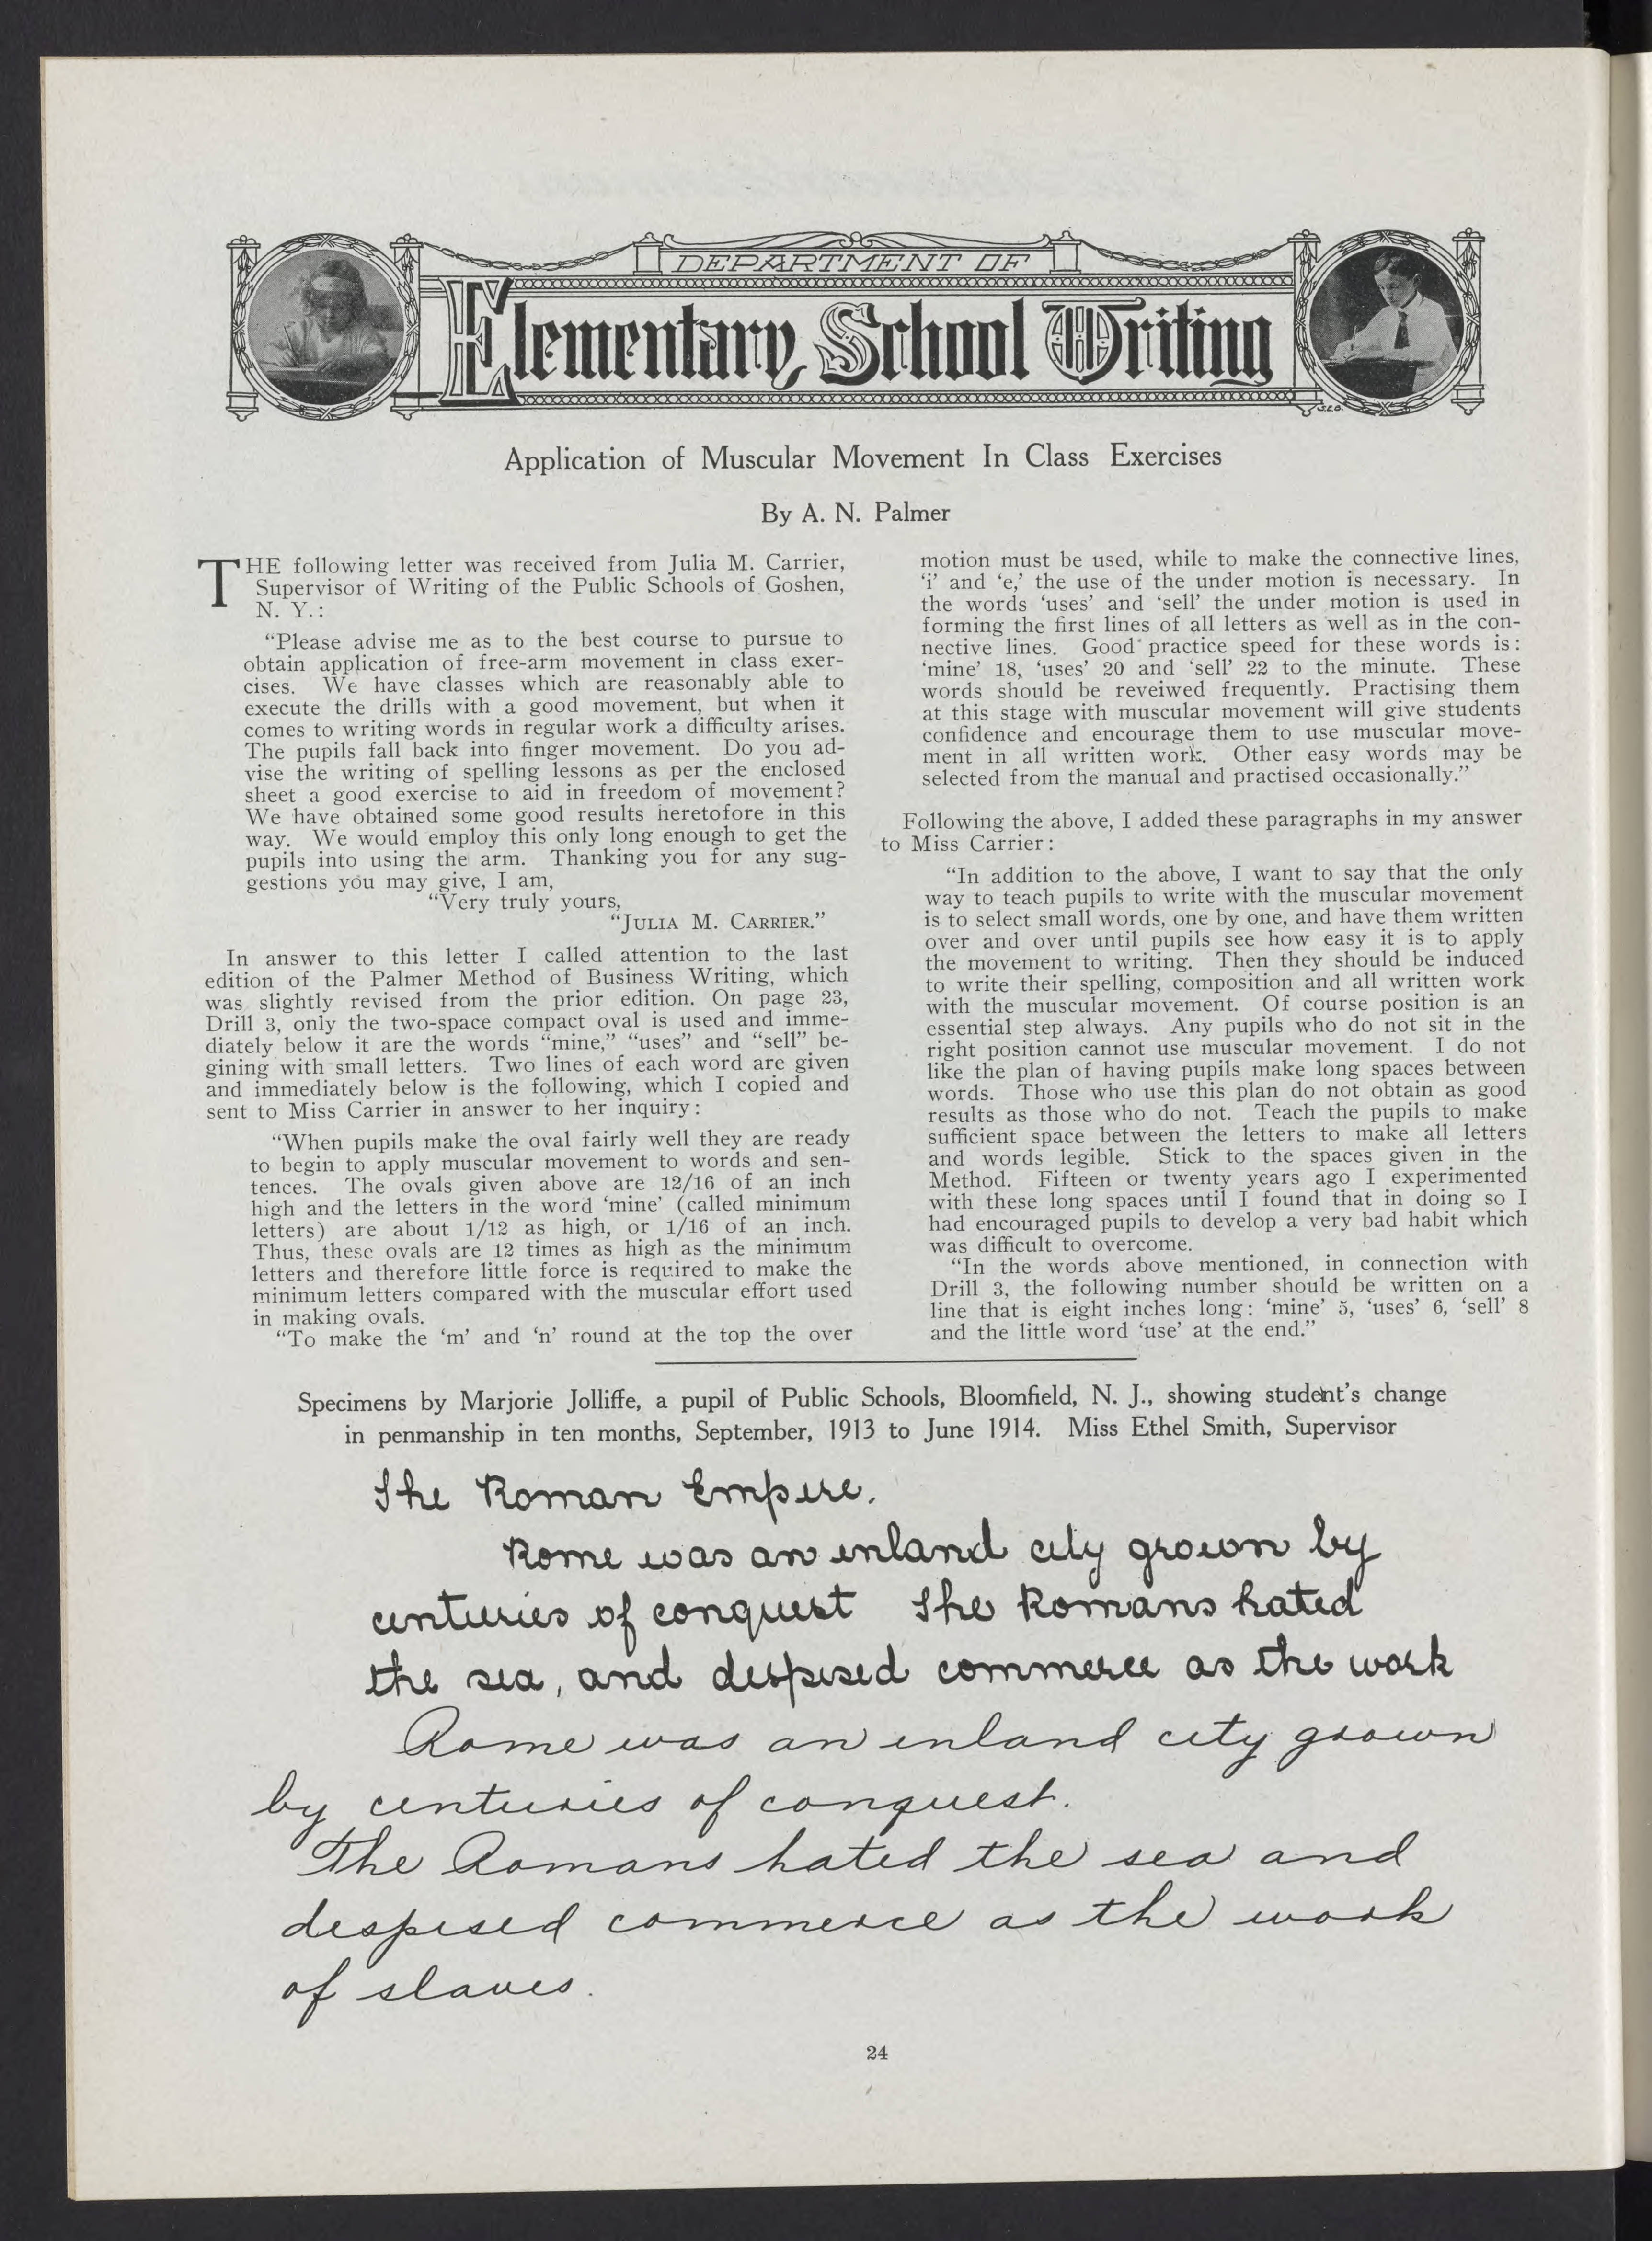 DEPARTMENT OF
Elementary School Writing
J.L.O.
Application of Muscular Movement In Class Exercises
By A. N. Palmer
THE following letter was received from Julia M. Carrier,
Supervisor of Writing of the Public Schools of Goshen,
N. Y.:
“Please advise me as to the best course to pursue to
obtain application of free-arm movement in class exer-
cises. We have classes which are reasonably able to
execute the drills with a good movement, but when it
comes to writing words in regular work a difficulty arises.
The pupils fall back into finger movement. Do you ad-
vise the writing of spelling lessons as per the enclosed
sheet a good exercise to aid in freedom of movement?
We have obtained some good results heretofore in this
way. We would employ this only long enough to get the
pupils into using the arm. Thanking you for any sug-
gestions you may give, I am,
“Very truly yours,
“JULIA M. CARRIER.”
In answer to this letter I called attention to the last
edition of the Palmer Method of Business Writing, which
was slightly revised from the prior edition. On page 23,
Drill 3, only the two-space compact oval is used and imme-
diately below it are the words “mine,” “uses” and “sell” be-
gining with small letters. Two lines of each word are given
and immediately below is the following, which I copied and
sent to Miss Carrier in answer to her inquiry:
“When pupils make the oval fairly well they are ready
to begin to apply muscular movement to words and sen-
tences. The ovals given above are 12/16 of an inch
high and the letters in the word ‘mine’ (called minimum
letters) are about 1/12 as high, or 1/16 of an inch.
Thus, these ovals are 12 times as high as the minimum
letters and therefore little force is required to make the
minimum letters compared with the muscular effort used
in making ovals.
“To make the ‘m’ and ‘n’ round at the top the over
motion must be used, while to make the connective lines,
‘i’ and ‘e,’ the use of the under motion is necessary. In
the words ‘uses’ and ‘sell’ the under motion is used in
forming the first lines of all letters as well as in the con-
nective lines. Good practice speed for these words is:
‘mine’ 18, ‘uses’ 20 and ‘sell’ 22 to the minute. These
words should be reveiwed frequently. Practising them
at this stage with muscular movement will give students
confidence and encourage them to use muscular move-
ment in all written work. Other easy words may be
selected from the manual and practised occasionally.”
Following the above, I added these paragraphs in my answer
to Miss Carrier:
“In addition to the above, I want to say that the only
way to teach pupils to write with the muscular movement
is to select small words, one by one, and have them written
over and over until pupils see how easy it is to apply
the movement to writing. Then they should be induced
to write their spelling, composition and all written work
with the muscular movement. Of course position is an
essential step always. Any pupils who do not sit in the
right position cannot use muscular movement. I do not
like the plan of having pupils make long spaces between
words. Those who use this plan do not obtain as good
results as those who do not. Teach the pupils to make
sufficient space between the letters to make all letters
and words legible. Stick to the spaces given in the
Method. Fifteen or twenty years ago I experimented
with these long spaces until I found that in doing so I
had encouraged pupils to develop a very bad habit which
was difficult to overcome.
“In the words above mentioned, in connection with
Drill 3, the following number should be written on a
line that is eight inches long: ‘mine’ 5, ‘uses’ 6, ‘sell’ 8
and the little word ‘use’ at the end.”
Specimens by Marjorie Jolliffe, a pupil of Public Schools, Bloomfield, N. J., showing student’s change
in penmanship in ten months, September, 1913 to June 1914. Miss Ethel Smith, Supervisor
The Roman Empire.
Rome was an inland city grown by
centuries of conquest The Romans hated
the sea, and despised commerce as the work
Rome was an inland city grown
by centuries of conquest.
The Romans hated the sea and
despised commerce as the work
of slaves.
24